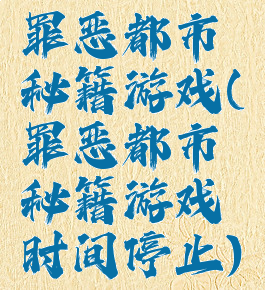 罪恶都市
秘籍游戏(
罪恶都市
秘籍游戏
时间停止)